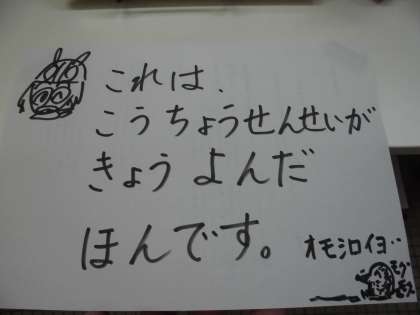 これは、
こうちょうせんせいが
きょうよんだ
ほんです。
オモシロイヨ‥